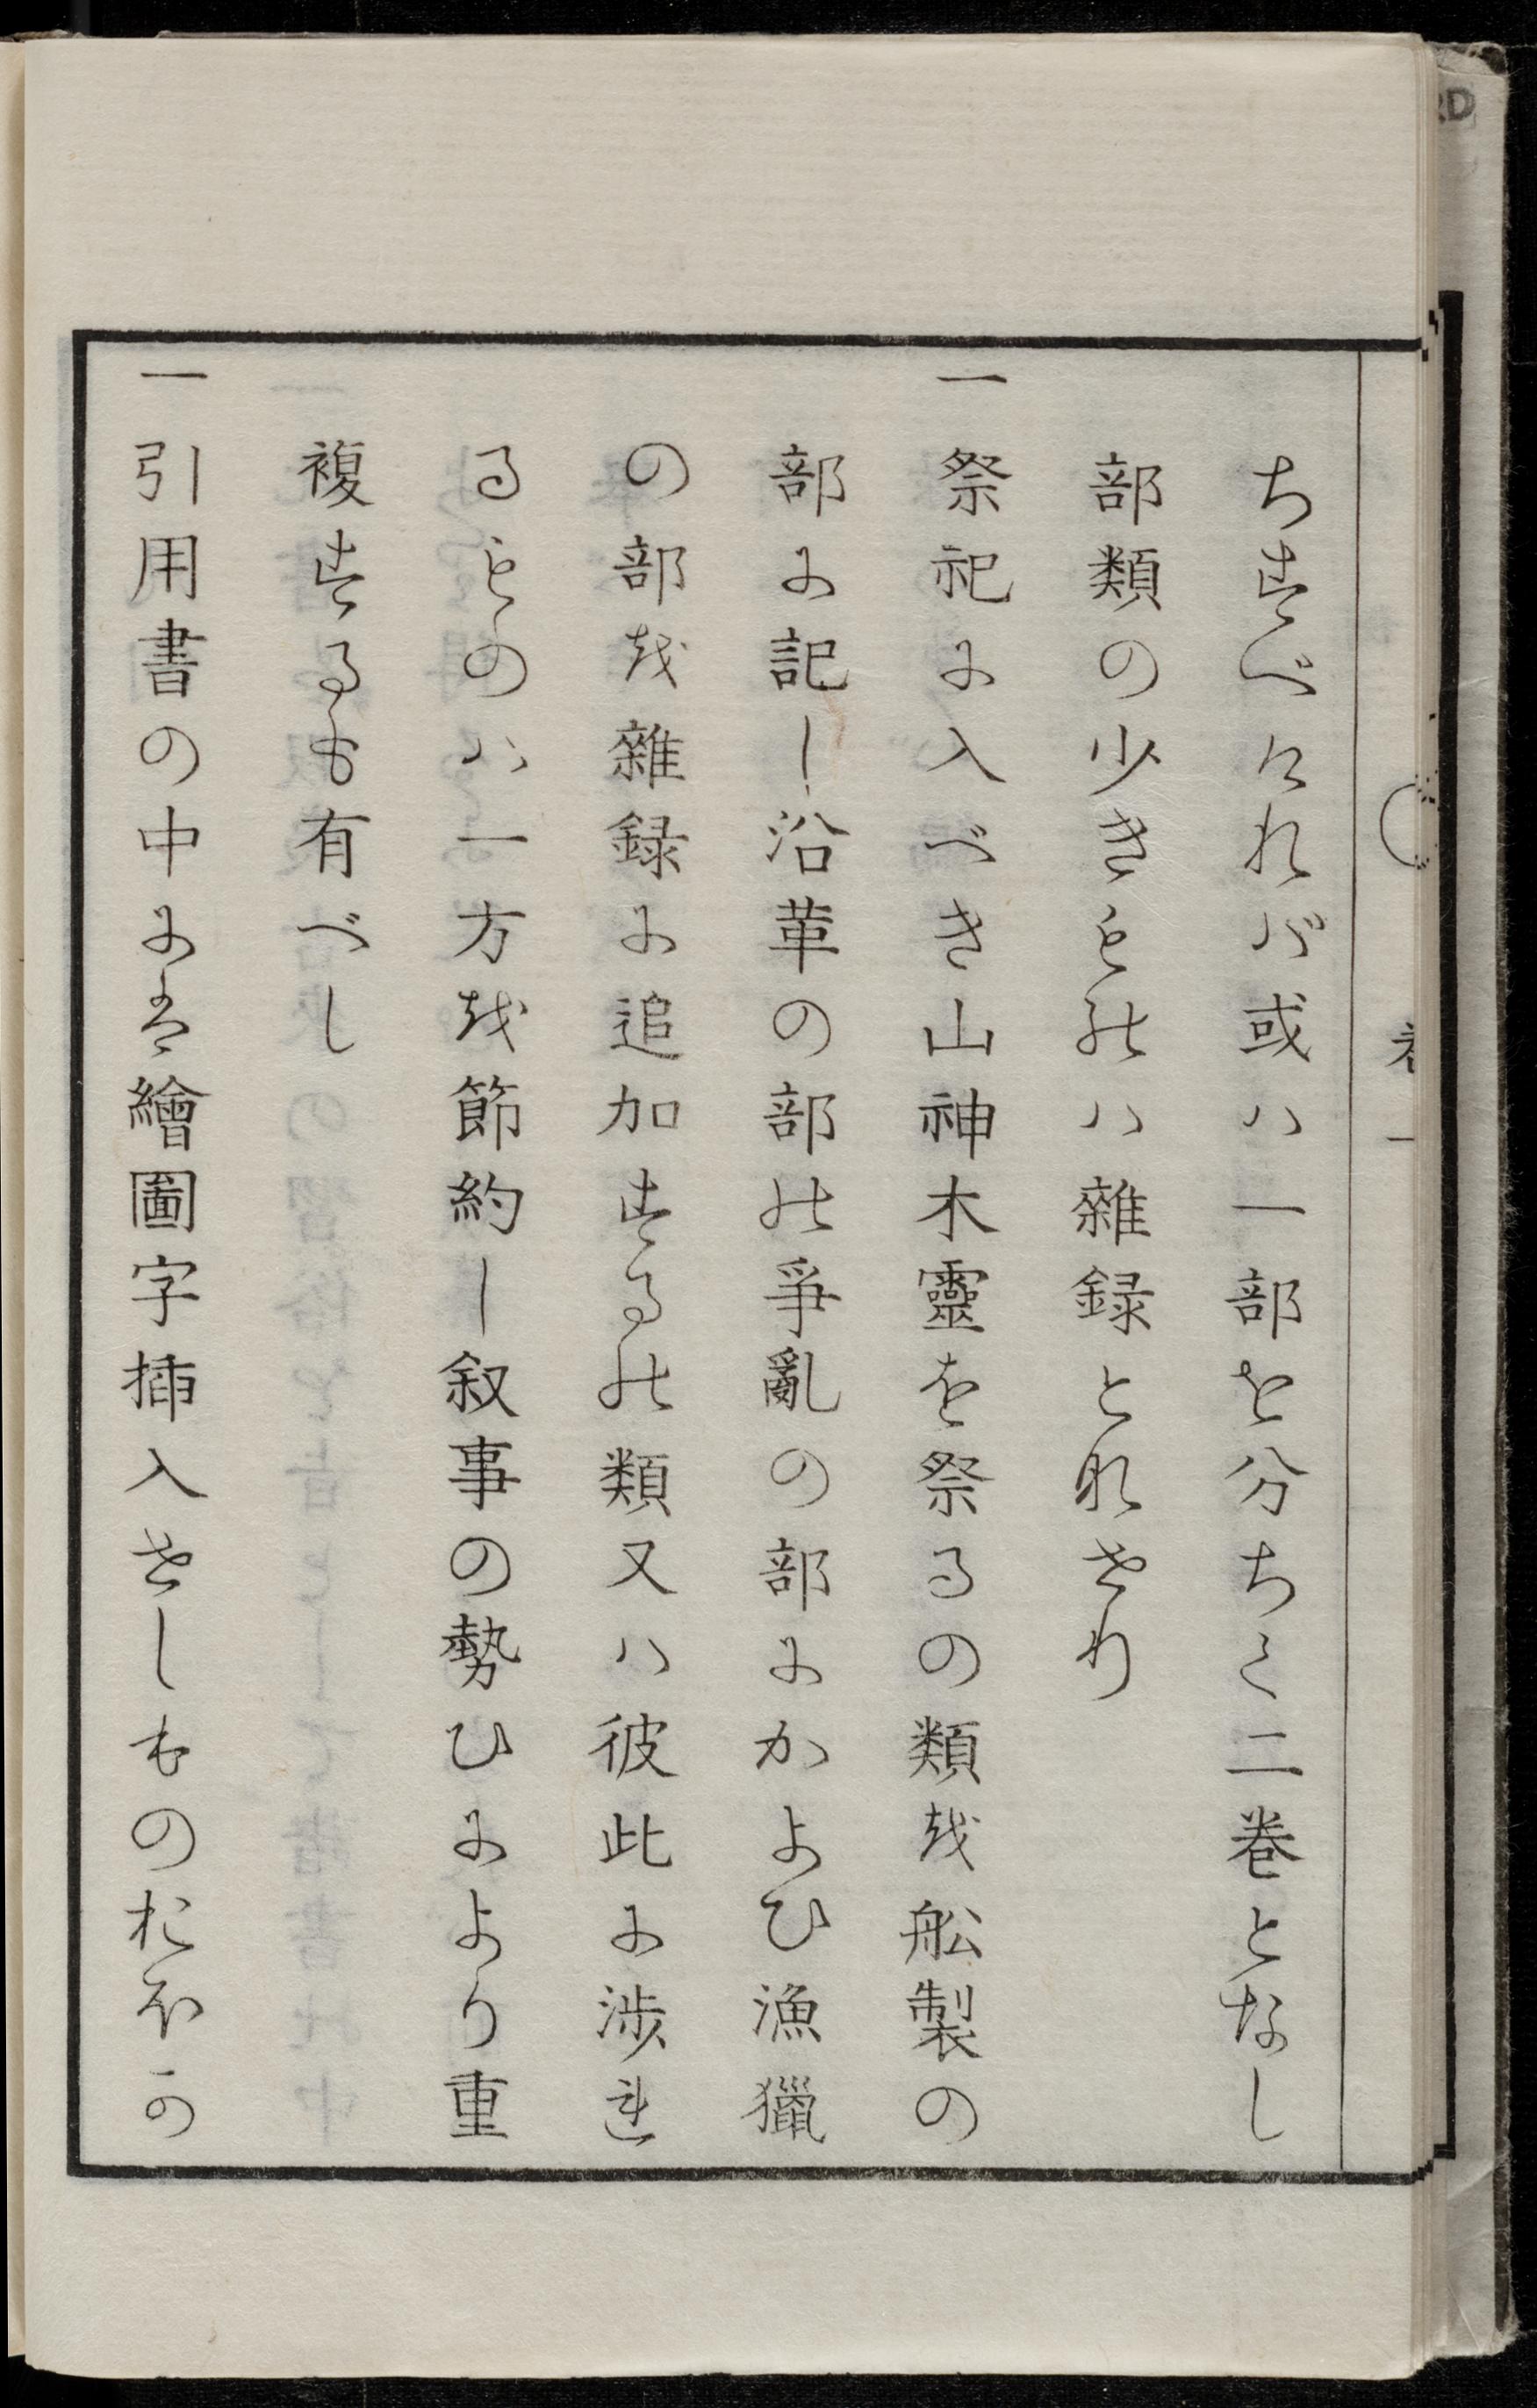 ちすべけれバ或ハ一部を分ちて二巻となし
部類の少きものハ雑録となせり
一 祭祀に入べき山神木靈を祭るの類を舩製の
部に記し沿革の部の爭亂の部におよび漁獵
の部を雜録に追加するの類又ハ彼此に渉れ
るものハ一方を節約し叙事の勢ひにより重
複するも有べし
一 引用書の中には繪圖字挿入せしものおほか